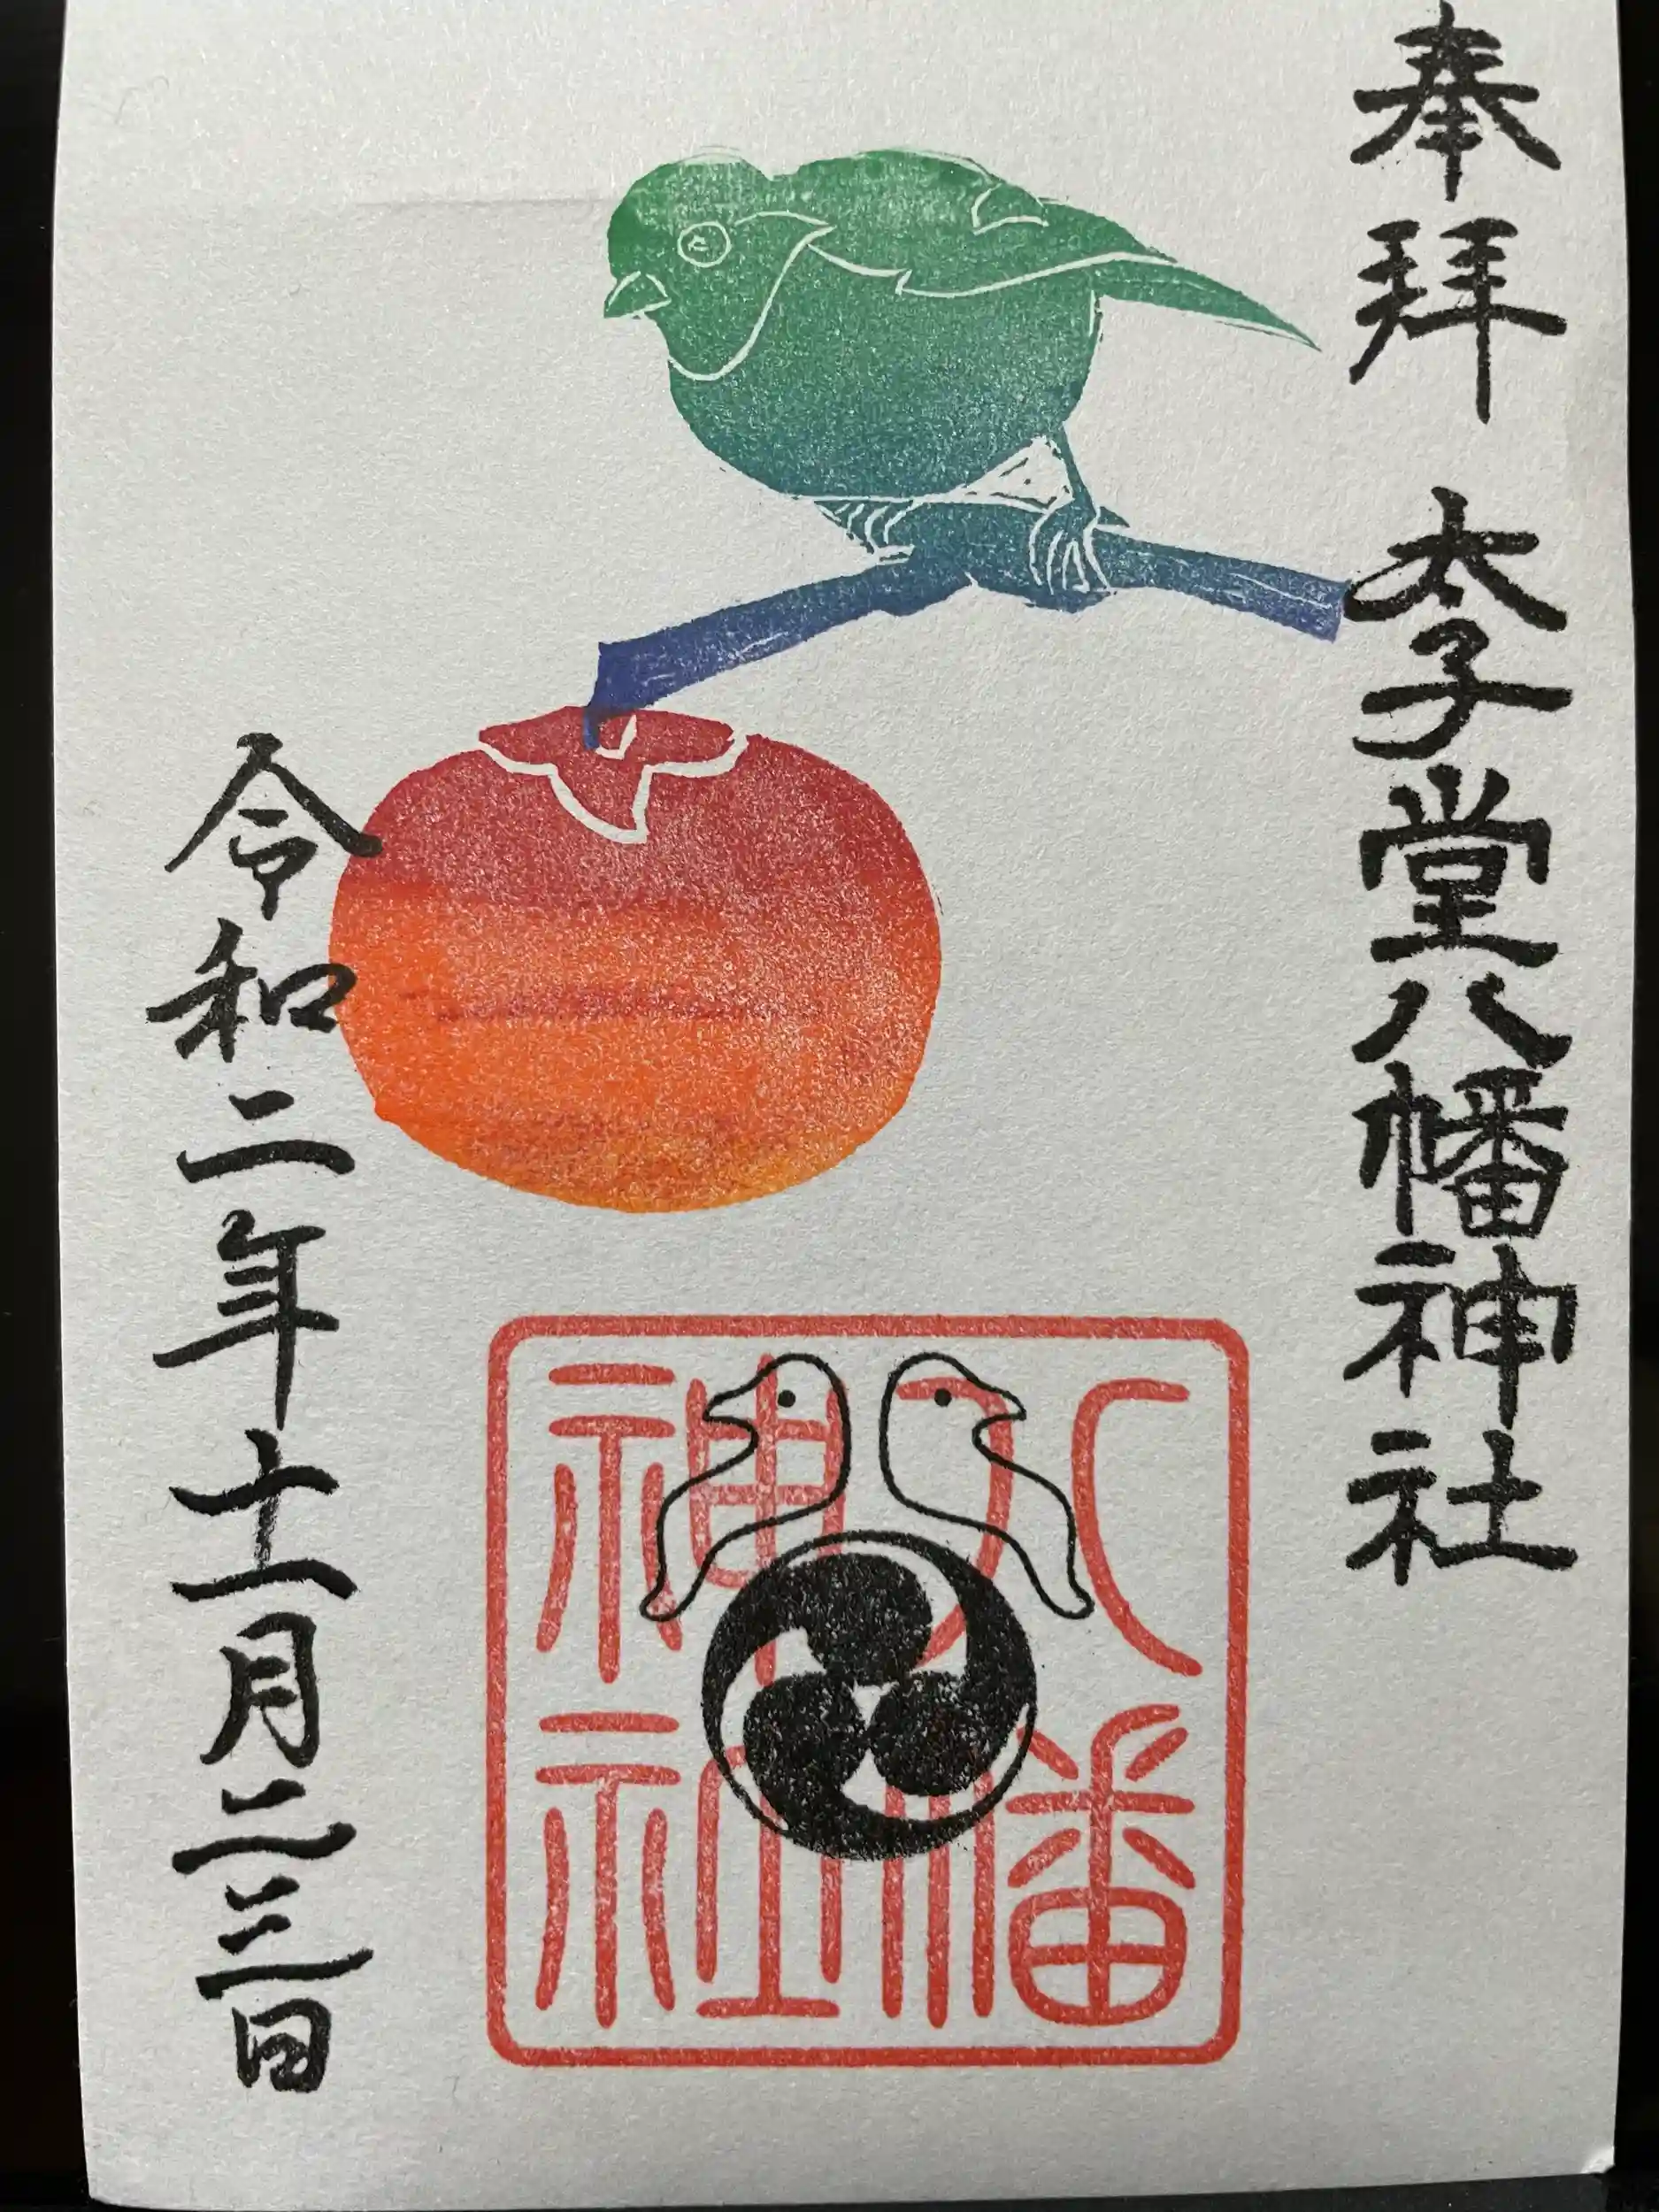 奉拝 太子堂八幡神社
八幡
神社
令和二年十一月二三日